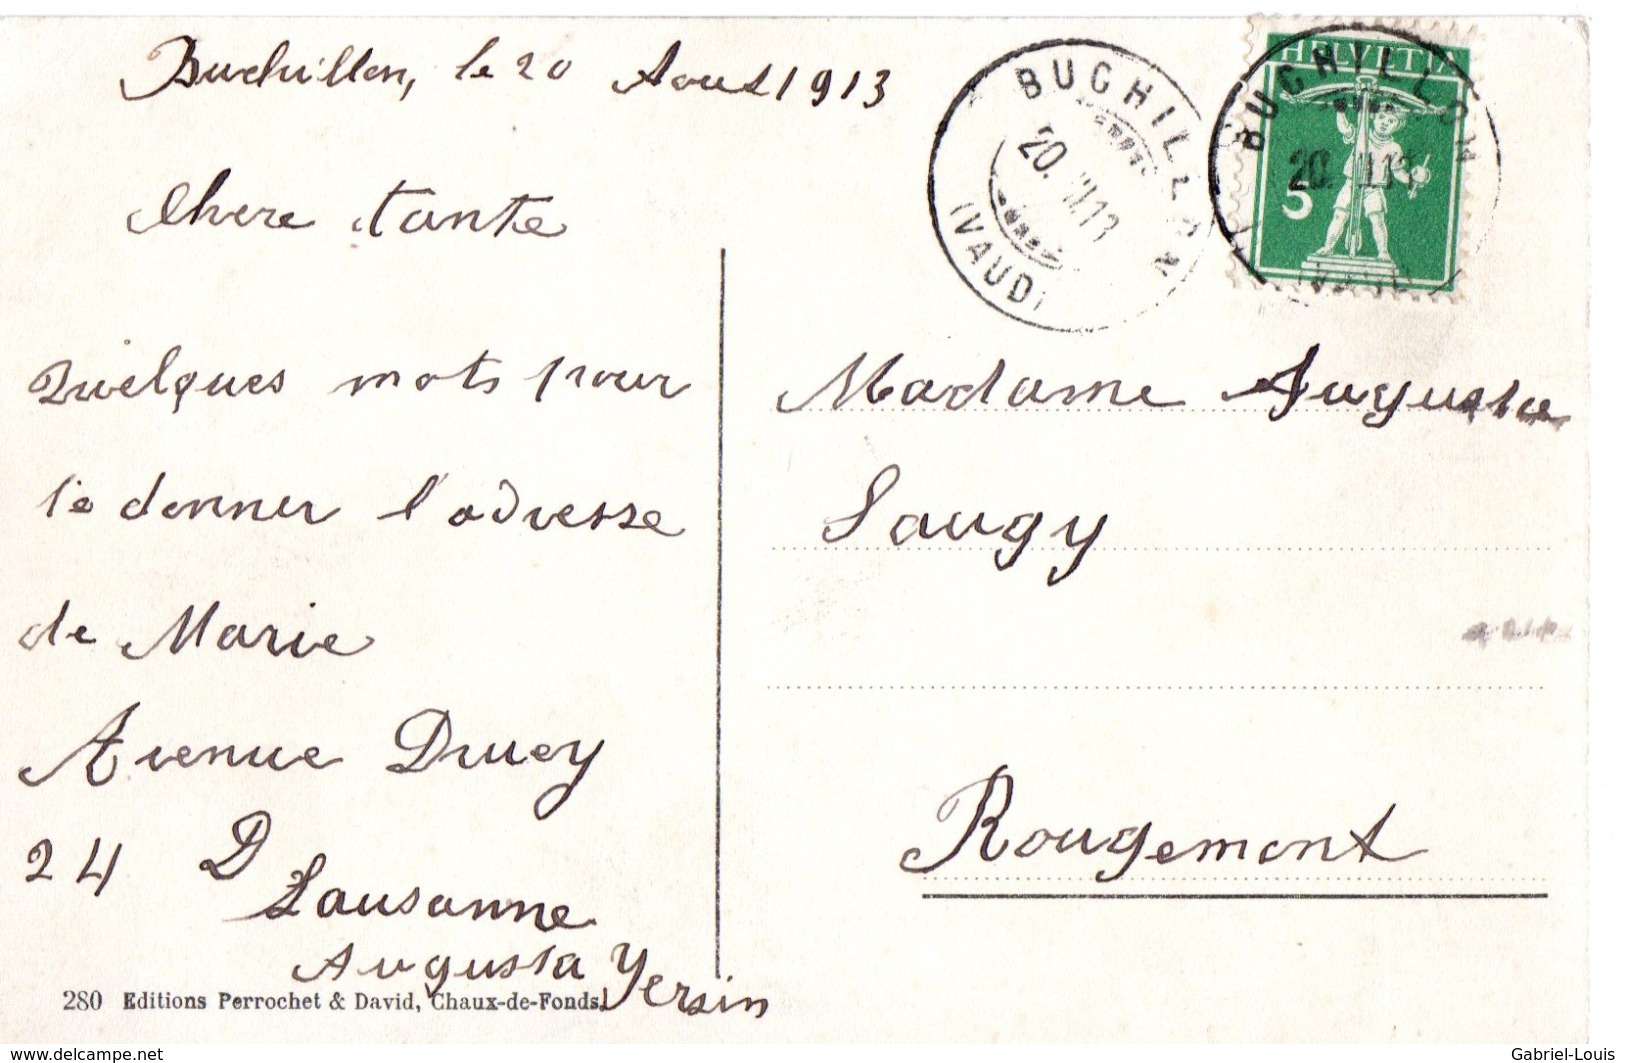 Buchillon, le 20 Aout 1913
Chere tante
Quelques mots pour
te donner l'adresse
de Marie
Avenue Druey
24 D
Lausanne
Augusta Yersin
280 Editions Perrochet & David, Chaux-de-Fonds.
BUCHILLON
20. VIII.13
(VAUD)
HELVETIA
5
BUCHILLON
20. VIII.13
(VAUD)
Madame Augusta
Saugy
Rougemont
www.delcampe.net
Gabriel-Louis